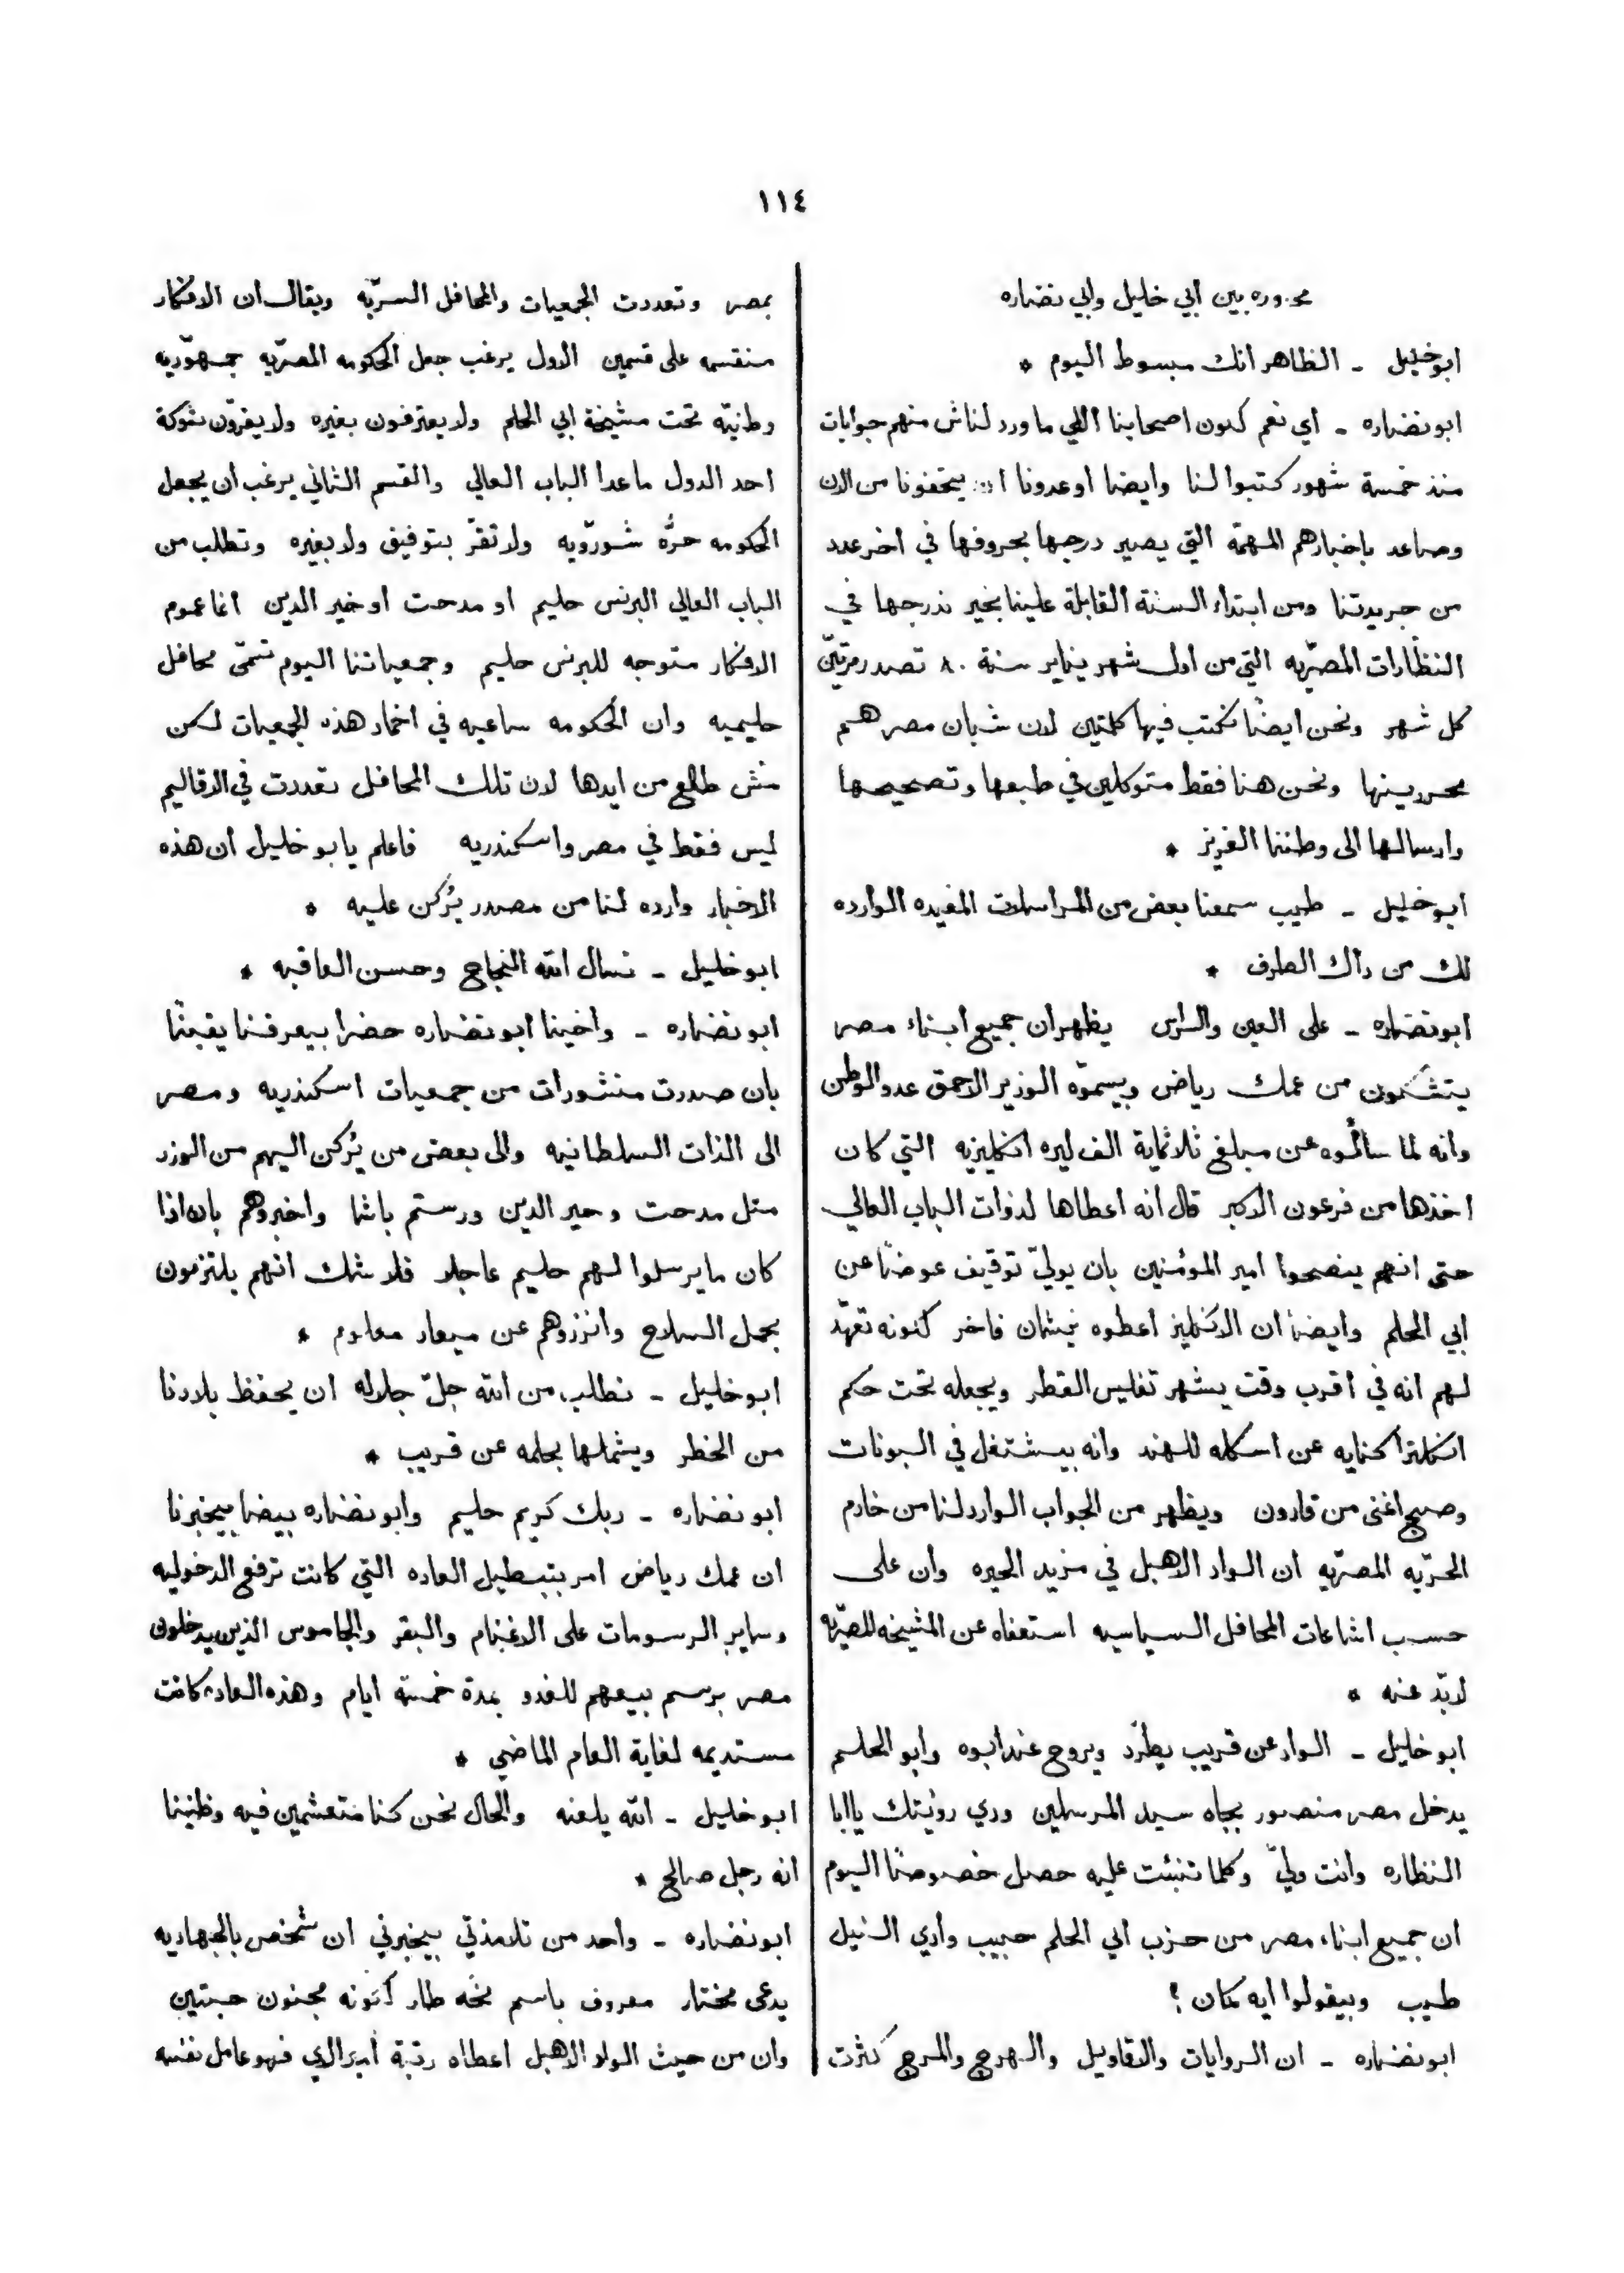 ١١٤
محاوره بين ابي خليل وابي نضاره
ابو خليل - الظاهر انك مبسوط اليوم *
ابو نضاره - اي نعم كون اصحابنا اللي ما ورد لناش منهم جوابات
منذ خمسة شهور كتبوا لنا وايضا اوعدونا ان يتحفونا من الان
وصاعد باخبارهم المهمّة التي يصير درجها بحروفها في اخر عدد
من جريدتنا ومن ابتداء السنة القابلة علينا بخير ندرجها في
النظّارات المصرّيه التي من اول شهر يناير سنة ٨٠ تصدر مرتيّن
كل شهر ونحن ايضًا نكتب فيها كلمتين لان شبان مصر هم
محررينها ونحن هنا فقط متوكلين في طبعها وتصحيحها
وارسالها الى وطننا العزيز *
ابو خليل - طيب سمعنا بعض من المراسلات المفيده الوارده
لك من داك الطرف *
ابو نضاره - على العين والراس يظهر ان جميع ابناء مصر
يتشكون من عمك رياض ويسموّه الوزير الاحمق عدو الوطن
وانه لما سألوه عن مبلغ ثلاثماية الف ليره انكليزيه التي كان
اخذها من فرعون الاكبر قال انه اعطاها لذوات الباب العالي
حتى انهم ينصحوا امير المؤمنين بان يوليّ توقيف عوضًا عن
ابي الحلم وايضا ان الانكليز اعطوه نيشان فاخر كونه تعهّد
لهم انه في اقرب وقت يشهر تفليس القطر ويجعله تحت حكم
انكلترا كنايه عن اسكله للهند وانه بيشتغل في البونات
وصبح اغنى من قارون ويظهر من الجواب الوارد لنا من خادم
الحرّيه المصرّيه ان الواد الاهبل في مزيد الحيره وان على
حسب اشاعات المحافل السياسيه استعفاه عن المشيخه المصرّيه
لابدّ عنه *
ابو خليل - الواد عن قريب يطرّد ويروح عند ابوه وابو الحلم
يدخل مصر منصور بجاه سيد المرسلين ودي رؤيتك يا ابا
النظاره وانت وليّ وكلما تنبئت عليه حصل خصوصًا اليوم
ان جميع ابناء مصر من حزب ابي الحلم حبيب وادي النيل
طيب وبيقولوا ايه كمان ؟
ابو نضاره - ان الروايات والاقاويل والهرج والمرج كثرت
بمصر وتعددت الجمعيات والمحافل السرّيه ويقال ان الافكار
منقسمه على قسمين الاول يرغب جعل الحكومه المصرّيه جمهوّريه
وطنيّه تحت مشيخة ابي الحلم ولا يعترفون بغيره ولا يقرّون شوكة
احد الدول ما عدا الباب العالي والقسم الثاني يرغب ان يجعل
الحكومه حرُّه شورّويه ولا تقرّ بتوفيق ولا بغيره وتطلب من
الباب العالي البرنس حليم او مدحت او خير الدين انما عموم
الافكار متوجه للبرنس حليم وجمعياتنا اليوم تسمّى محافل
حليميه وان الحكومه ساعيه في اخماد هذه الجمعيات لكن
مش طالع من ايدها لان تلك المحافل تعددت في الاقاليم
ليس فقط في مصر واسكندريه فاعلم يا بو خليل ان هذه
الاخبار وارده لنا من مصدر يُركن عليه *
ابو خليل - نسال الله النجاح وحسن العاقبه *
ابو نضاره - واخينا ابو نضاره حضرا بيعرفنا يقينًا
بان صدرت منشورات من جمعيات اسكندريه ومصر
الى الذات السلطانيه والى بعض من يُركن اليهم من الوزر
مثل مدحت وخير الدين ورستم باشا واخبروهم بان اذا
كان ما يرسلوا لهم حليم عاجلا فلا شك انهم يلتزمون
بحمل السلاح وانزروهم عن ميعاد معلوم *
ابو خليل - نطلب من الله جلّ جلاله ان يحفظ بلادنا
من الخطر ويشملها بحلمه عن قريب *
ابو نضاره - ربك كريم حليم وابو نضاره بيضا بيخبرنا
ان عمك رياض امر بتبطيل العاده التي كانت ترفع الدخوليه
وساير الرسومات على الاغنام والبقر والجاموس الذين يدخلون
مصر برسم بيعهم للغدو بمدة خمسة ايام وهذه العاده كانت
مستديمه لغاية العام الماضي *
ابو خليل - الله يلعنه والحال نحن كنا متعشمين فيه وظنينا
انه رجل صالح *
ابو نضاره - واحد من تلامذتي بيخبرني ان شخص بالجهاديه
يدعى مختار معروف باسم نخه طار كونه مجنون حبتين
وان من حيث الواد الاهبل اعطاه رتبة أميرالاي فهو عامل نفسه